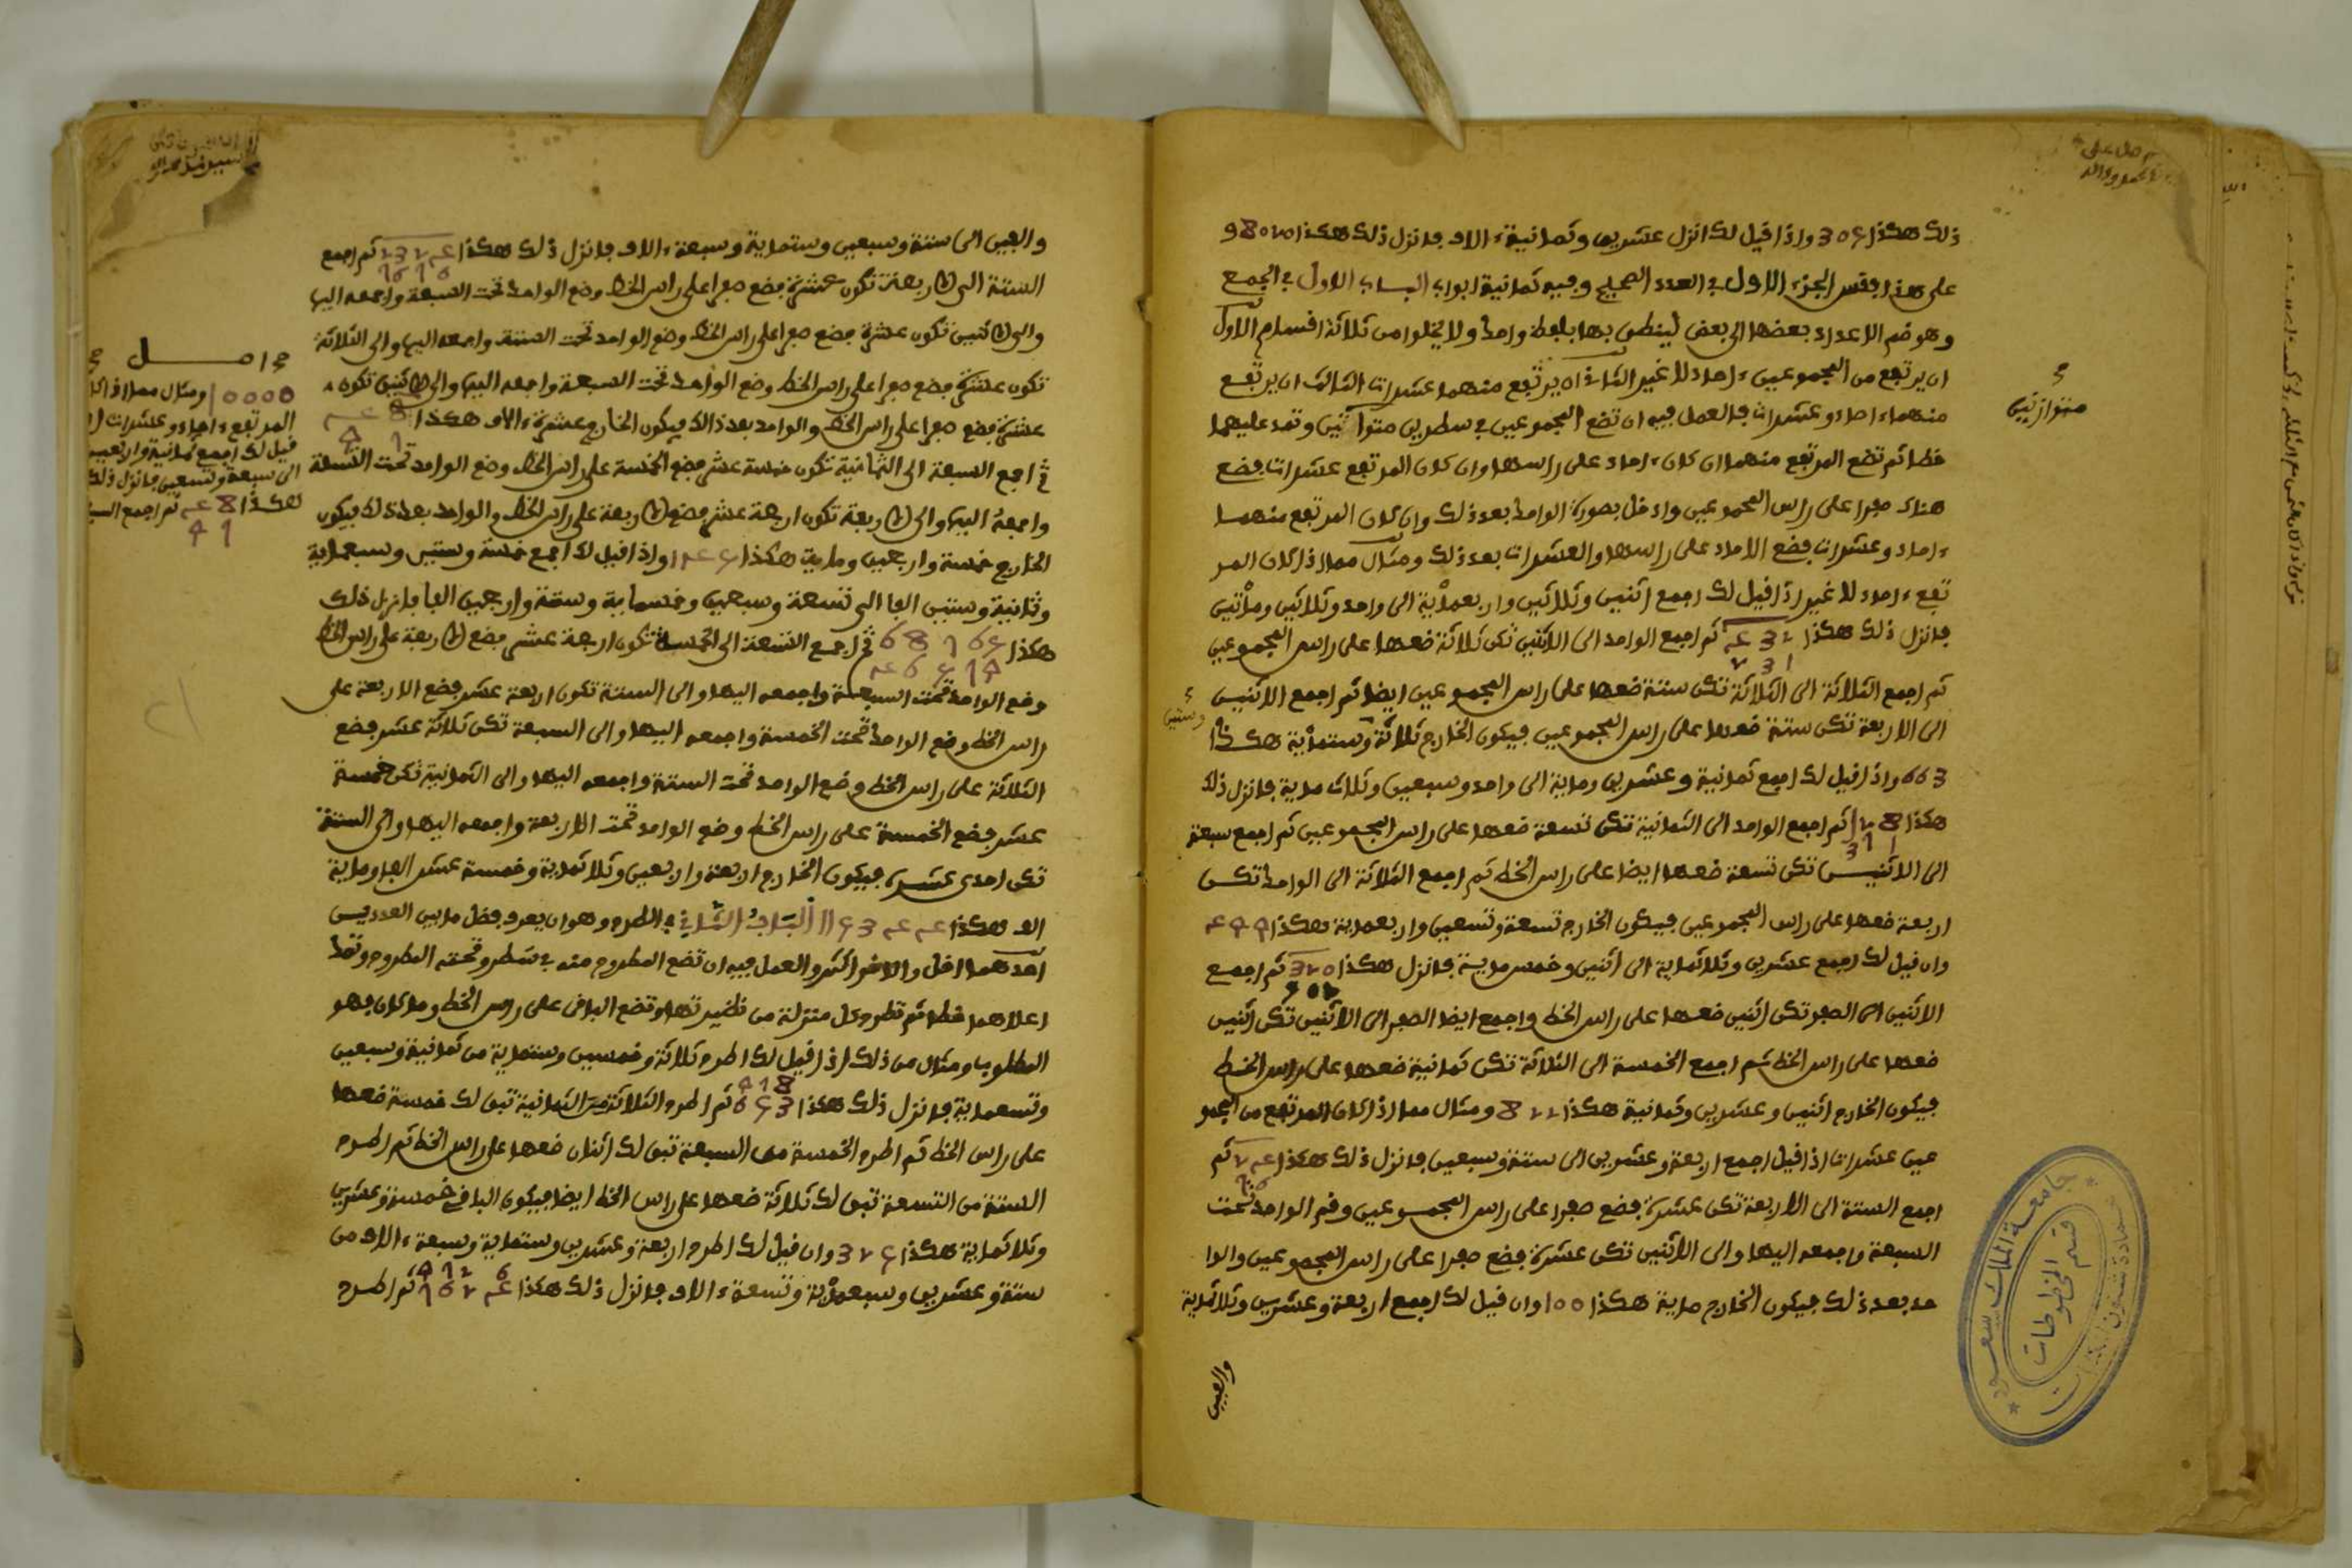 ذلك هكذا 305 واذا قيل لك انزل عشرين وثمانية ءالاف فانزل ذلك هكذا 8020 و
على هذا فقس الجزء الاول في العدد الصحيح وفيه ثمانية ابواب الباب الاول في الجمع
وهو ضم الاعداد بعضها الى بعض لينطق بها بلفظ واحد ولا يخلوا من ثلاثة اقسام الاول
ان يرتفع من المجموعين ءاحاد لا غير الثاني ان يرتفع منهما عشرات الثالث ان يرتفع
منهما ءاحاد وعشرات فالعمل فيه ان تضع المجموعين في سطرين متوازنين وتمد عليهما
خطا ثم تضع المرتفع منهما ان كان ءاحاد على راسها وان كان المرتفع عشرات فضع
هناك صفرا على راس المجموعين وادخل بصورة الواحد بعد ذلك وان كان المرتفع منهما
ءاحاد وعشرات فضع الاحاد على راسها والعشرات بعد ذلك ومثال مما اذا كان المر
تفع ءاحاد لا غير اذا قيل لك اجمع اثنين وثلاثين واربعماية الى واحد وثلاثين ومأتين
فانزل ذلك هكذا 432 ثم اجمع الواحد الى الاثنين تكن ثلاثة ضعها على راس المجموعين
231
ثم اجمع الثلاثة الى الثلاثة تكن ستة ضعها على راس المجموعين ايضا ثم اجمع الاثنين
الى الاربعة تكن ستة ضعها على راس المجموعين فيكون الخارج ثلاثة وستماية هكذا
وستين
663 واذا قيل لك اجمع ثمانية وعشرين وماية الى واحد وسبعين وثلاث ماية فانزل ذلك
هكذا 128 ثم اجمع الواحد الى الثمانية تكن تسعة ضعها على راس المجموعين ثم اجمع سبعة
371
الى الاثنين تكن تسعة ضعها ايضا على راس الخط ثم اجمع الثلاثة الى الواحد تكن
اربعة ضعها على راس المجموعين فيكون الخارج تسعة وتسعين واربعماية هكذا 499
وان قيل لك اجمع عشرين وثلاثماية الى اثنين وخمس ماية فانزل هكذا 320 ثم اجمع
502
الاثنين الى الصفر تكن اثنين ضعها على راس الخط واجمع ايضا الصفر الى الاثنين تكن اثنين
ضعها على راس الخط ثم اجمع الخمسة الى الثلاثة تكن ثمانية ضعها على راس الخط
فيكون الخارج اثنين وعشرين وثمانية هكذا 822 ومثال مما اذا كان المرتفع من المجمو
عين عشرات اذا قيل اجمع اربعة وعشرين الى ستة وسبعين فانزل ذلك هكذا 24 ثم
76
اجمع الستة الى الاربعة تكن عشرة فضع صفرا على راس المجموعين وضع الواحد تحت
السبعة واجمعه اليها والى الاثنين تكن عشرة فضع صفرا على راس المجموعين والوا
حد بعد ذلك فيكون الخارج ماية هكذا 100 وان قيل لك اجمع اربعة وعشرين وثلاثماية
والفين
متوازنين
جامعة الملك سعود
قسم المخطوطات
والفين الى ستة وسبعين وستماية وسبعة ءالاف فانزل ذلك هكذا 2324 ثم اجمع
7676
الستة الى الاربعة تكون عشرة فضع صفرا على راس الخط وضع الواحد تحت السبعة واجمعه اليها
والى الاثنين تكون عشرة فضع صفرا على راس الخط وضع الواحد تحت الستة واجمعه اليها والى الثلاثة
تكون عشرة فضع صفرا على راس الخط وضع الواحد تحت السبعة واجمعه اليها والى الاثنين تكون
عشرة فضع صفرا على راس الخط والواحد بعد ذالك فيكون الخارج عشرة ءالاف هكذا 48
97
ثم اجمع السبعة الى الثمانية تكون خمسة عشر فضع الخمسة على راس الخط وضع الواحد تحت التسعة
واجمعه اليها والى الاربعة تكون اربعة عشر فضع الاربعة على راس الخط والواحد بعد ذلك فيكون
الخارج خمسة واربعين وماية هكذا 145 واذا قيل لك اجمع خمسة وستين وسبعماية
وثمانية وستين الفا الى تسعة وسبعين وخمسماية وستة واربعين الفا فانزل ذلك
هكذا 68765 ثم اجمع التسعة الى الخمسة تكون اربعة عشر فضع الاربعة على راس الخط
46579
وضع الواحد تحت السبعة واجمعه اليها والى الستة تكون اربعة عشر فضع الاربعة على
راس الخط وضع الواحد تحت الخمسة واجمعه اليها والى السبعة تكن ثلاثة عشر فضع
الثلاثة على راس الخط وضع الواحد تحت الستة واجمعه اليها والى الثمانية تكن خمسة
عشر فضع الخمسة على راس الخط وضع الواحد تحت الاربعة واجمعه اليها والى الستة
تكن احدى عشرة فيكون الخارج اربعة واربعين وثلاثماية وخمسة عشر الفا وماية
الف هكذا 115344 الباب الثاني في الطرح وهو ان يعرف فضل مابين العددين
احدهما اقل والاخر اكثر والعمل فيه ان تضع المطروح منه في سطر وتحته المطروح وتمد
اعلاهما خطا ثم تطرح كل منزلة من نظيرتها وتضع الباقي على راس الخط وما كان فهو
المطلوب ومثال من ذلك اذا قيل لك اطرح ثلاثة وخمسين وستماية من ثمانية وسبعين
978
وتسعماية فانزل ذلك هكذا 653 ثم اطرح الثلاثة من الثمانية تبق لك خمسة ضعها
على راس الخط ثم اطرح الخمسة من السبعة تبق لك اثنان ضعها على راس الخط ثم اطرح
الستة من التسعة تبق لك ثلاثة ضعها على راس الخط ايضا فيكون الباقي خمسة وعشرين
وثلاثماية هكذا 325 وان قيل لك اطرح اربعة وعشرين وستماية وسبعة ءالاف من
9726
ستة وعشرين وسبعماية وتسعة ءالاف فانزل ذلك هكذا 7624 ثم اطرح
اصل
10000 ومثال مما اذا كا
المرتفع ءاحاد وعشرات
قيل لك اجمع ثمانية واربعين
الى سبعة وتسعين فانزل ذلك
هكذا 48 ثم اجمع
97